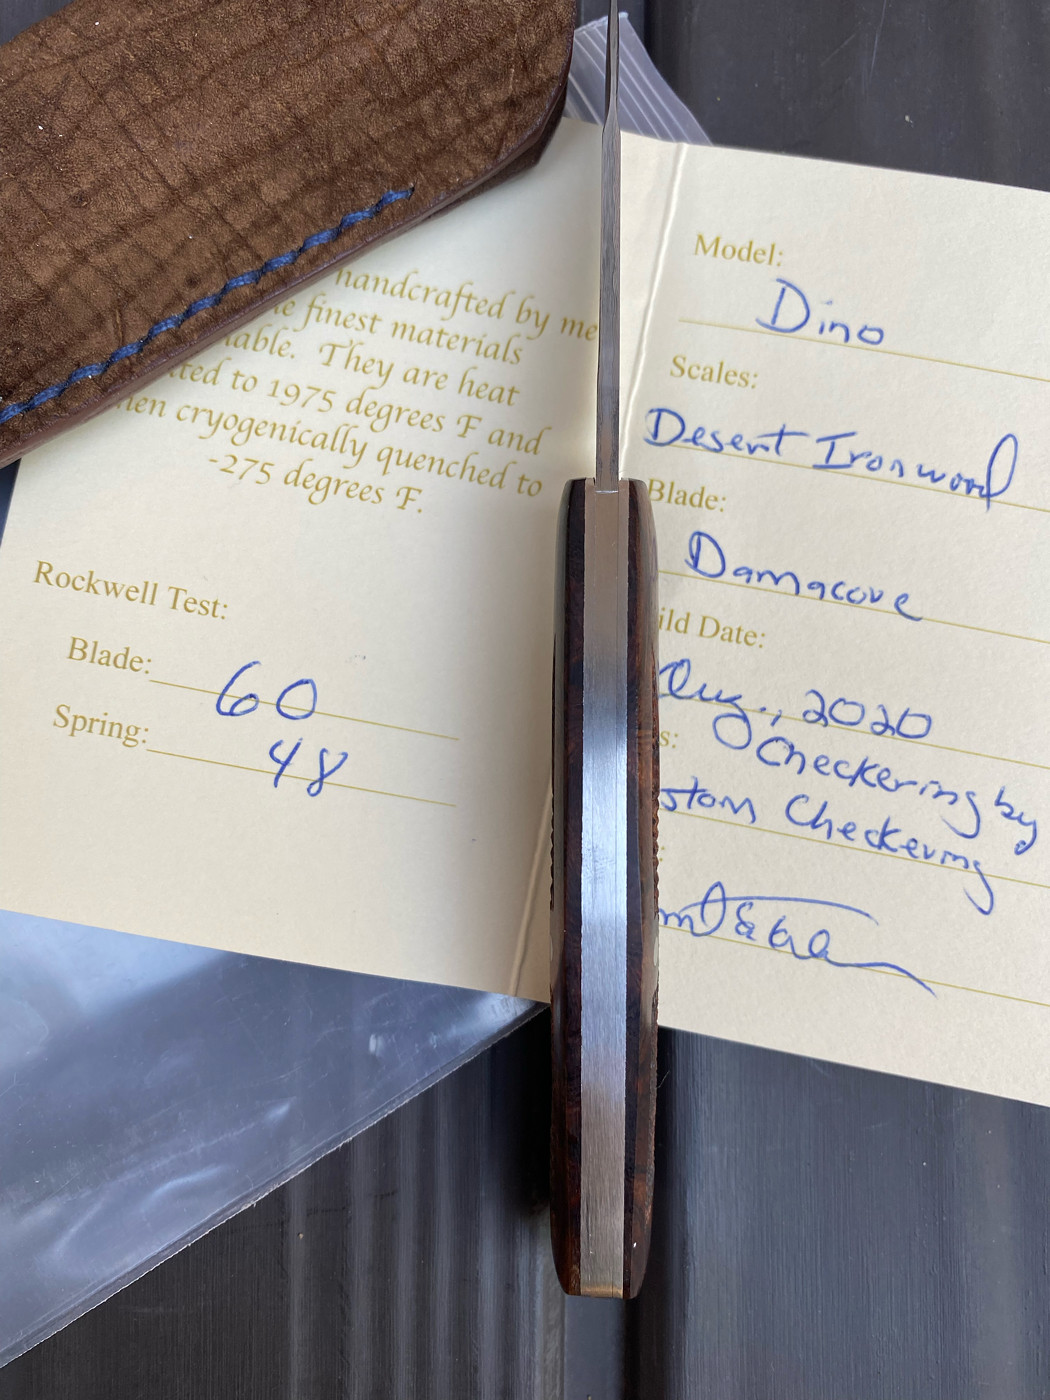 handcrafted by me
finest materials
They are heat
to 1975 degrees F and
cryogenically quenched to
-275 degrees F.
Rockwell Test:
Blade: 60
Spring: 48
Model:
Dino
Scales:
Desert Ironwood
Blade:
Damacore
Date:
Aug., 2020
Checkering by
Checkering